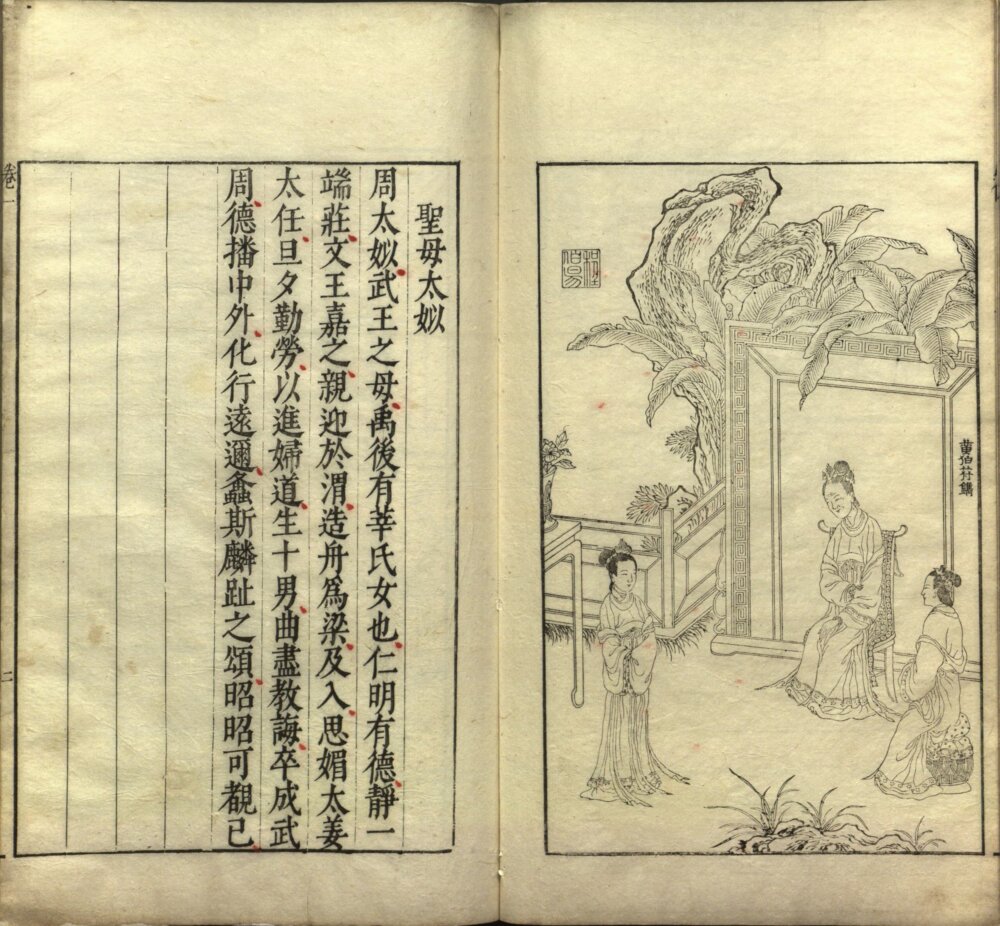 黄伯符鐫
聖母太姒
周太姒武王之母禹後有莘氏女也仁明有德靜一
端莊文王嘉之親迎於渭造舟爲梁及入思媚太姜
太任旦夕勤勞以進婦道生十男曲盡教誨卒成武
周德播中外化行遠邇螽斯麟趾之頌昭昭可覩已
卷一
二